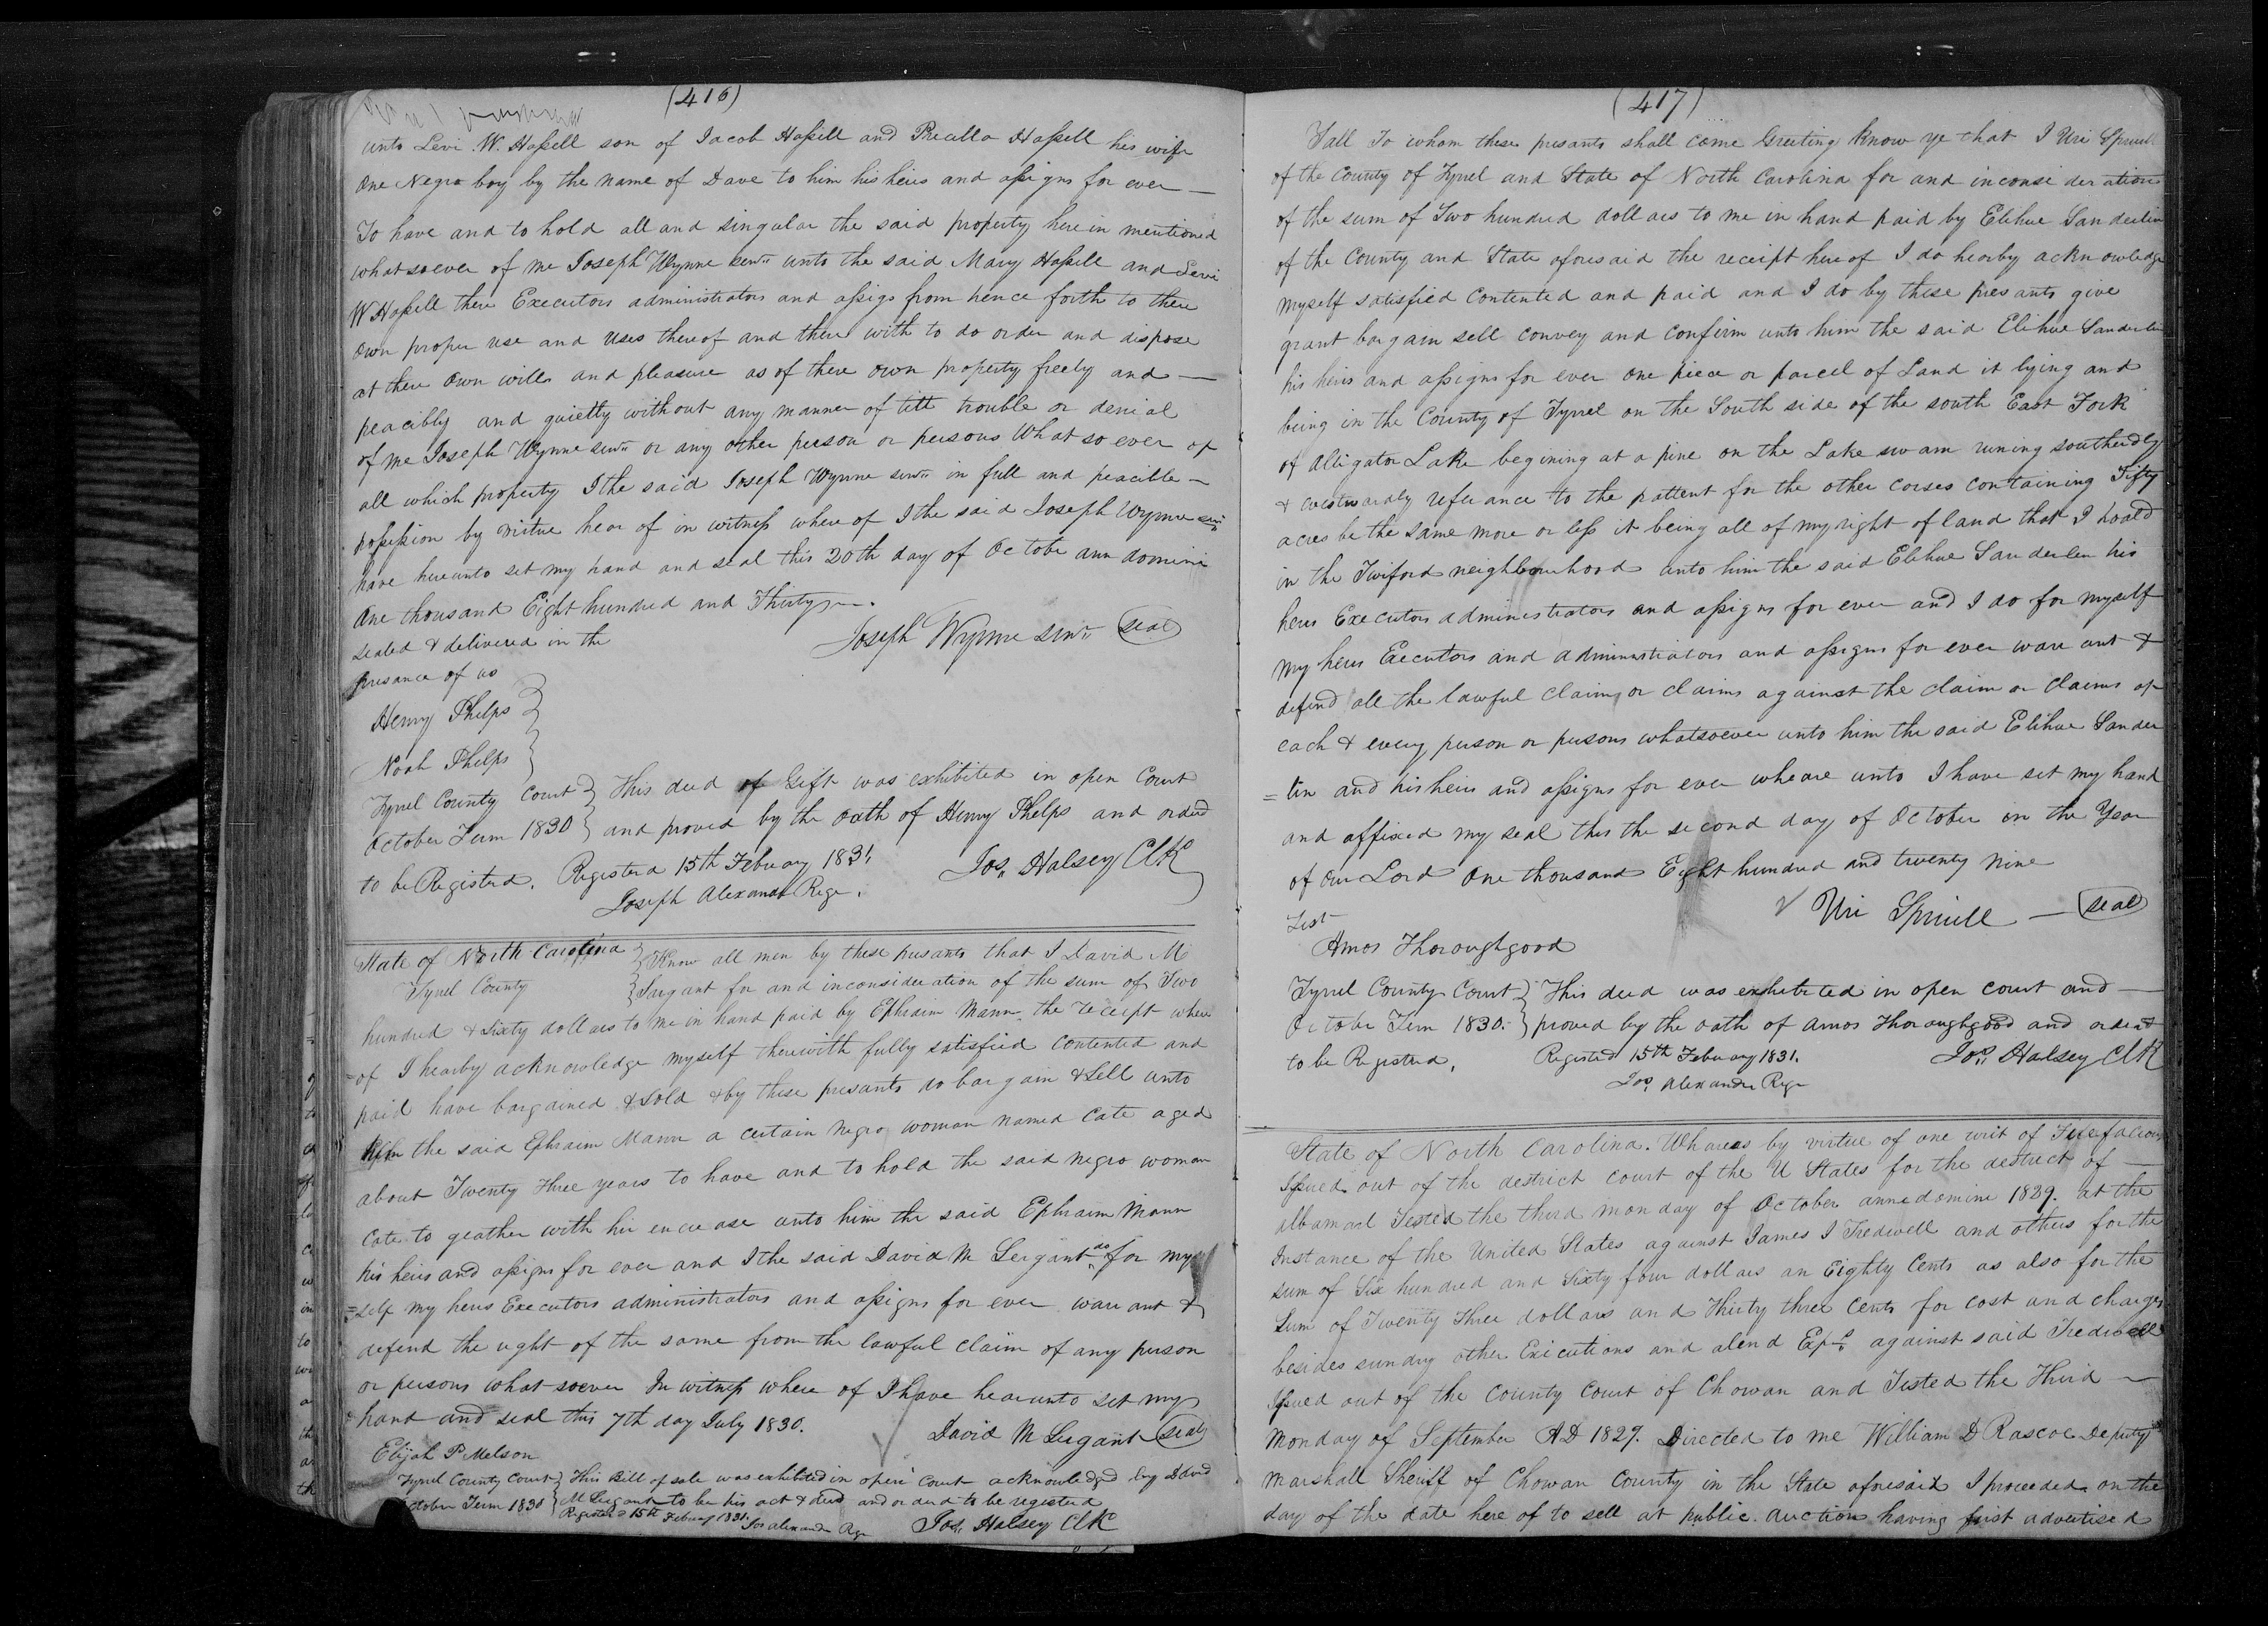 (416)
unto Levi W. Hassell son of Jacob Hassell and Precilla Hassell his wife
One Negro boy by the name of Dave to him his heirs and assigns for ever —
To have and to hold all and singular the said property here in mentioned
whatsoever of me Joseph Wynne senr unto the said Mary Hassell and Levi
W Hassell there Executors administrators and assigs from hence forth to there
own proper use and uses thereof and there with to do order and dispose
at there own will and pleasure as of there own property freely and —
peacibly and quietly without any manner of lett trouble or denial
of me Joseph Wynne senr or any other person or persons What so ever of
all which property I the said Joseph Wynne senr in full and peacible —
possession by virtue hear of in witness where of I the said Joseph Wynne senr
have hereunto set my hand and seal this 20th day of Octobe ann domini
One thousand Eight hundred and Thirty —.
sealed & delivered in the
Joseph Wynne senr (seal)
presance of us
Henry Phelps
Noah Phelps
Tyrrel County Court } This deed of Gift was exhibited in open Court
October Term 1830 } and proved by the oath of Henry Phelps and orderd
to be Registerd. Registerd 15th Febuary 1831, Jos, Halsey ClK
Joseph Alexander Rege.
State of North Carolina } Know all men by these presants that I David M
Tyrrel County } Sargant for and inconsideration of the sum of Two
hundred & Sixty dollars to me in hand paid by Ephraim Mann the receipt where
=of I hearby acknowledge myself therewith fully satisfied contented and
paid have bargained & sold & by these presants do bargain & sell unto
the said Ephraim Mann a certain negro woman named Cate aged
about Twenty three years to have and to hold the said negro woman
Cate to geather with hir encrease unto him the said Ephraim Mann
his heirs and assigns for ever and I the said David M Sergant do for my
=self my heirs Executors administrators and assigns for ever warant &
defend the right of the same from the lawful claim of any person
or persons what soever In witness where of I have hearunto set my
hand and seal this 7th day July 1830.
David M Sergant (seal)
Elijah P Melson
Tyrrel County Court } This Bill of sale was exhibited in open Court acknowledged by David
October Term 1830 } M Sergant to be his act & deed and orderd to be registerd
Registerd 15th Febuary 1831. Jos alexander Rege Jos, Halsey ClK
(417)
To all To whom these presants shall come Greeting Know ye that I Uri Spruill
of the County of Tyrrel and State of North Carolina for and inconsideration
of the sum of Two hundred dollars to me in hand paid by Elihue Sanderlin
of the County and State aforesaid the receipt hereof I do hearby acknowledge
myself satisfied contented and paid and I do by these presants give
grant bargain sell convey and confirm unto him the said Elihue Sanderlin
his heirs and assigns for ever one piece or parcel of Land it lying and
being in the County of Tyrrel on the South side of the south East Fork
of Alligator Lake begining at a pine on the Lake swam runing southerdly
& westwardly referance to the pattent for the other corses containing Fifty
acres be the same more or less it being all of my right of land that I hoald
in the Twiford neighbourhood unto him the said Elihue Sanderlin his
heirs Executors administrators and assigns for ever and I do for myself
my heirs Executors and administrators and assigns for ever warant &
defend all the lawful claims or claims against the claim or claims of
each & every person or persons whatsoever unto him the said Elihue Sander
=lin and his heirs and assigns for ever wheare unto I have set my hand
and affixed my seal this the second day of October in the Year
of our Lord One thousand Eight hundred and twenty nine
Uri Spruill — (seal)
Test
Amos Thoroughgood
Tyrrel County Court } This deed was exhibited in open court and —
Octobe Term 1830. } proved by the oath of Amos Thoroughgood and orderd
to be Registerd, Registerd 15th Febuary 1831. Jos, Halsey ClK
Jos, Alexander Rege
State of North Carolina. Whareas by virtue of one writ of Fierefacious
Issued out of the destrict court of the U States for the destrict of —
albamarl Tested the third monday of October annedomine 1829. at the
Instance of the United States against James I Tredwell and others for the
sum of Six hundred and Sixty four dollars an Eighty Cents as also for the
Sum of Twenty three dollars and Thirty three Cents for cost and charges
besides sundry other Executions and alend Exps against said Tredwell
Issued out of the County Court of Chowan and Tested the Third —
Monday of September AD 1829. Directed to me William D Rascoe Deputy
Marshall Sheriff of Chowan County in the State aforesaid I proceeded on the
day of the date here of to sell at public auction having first advertised